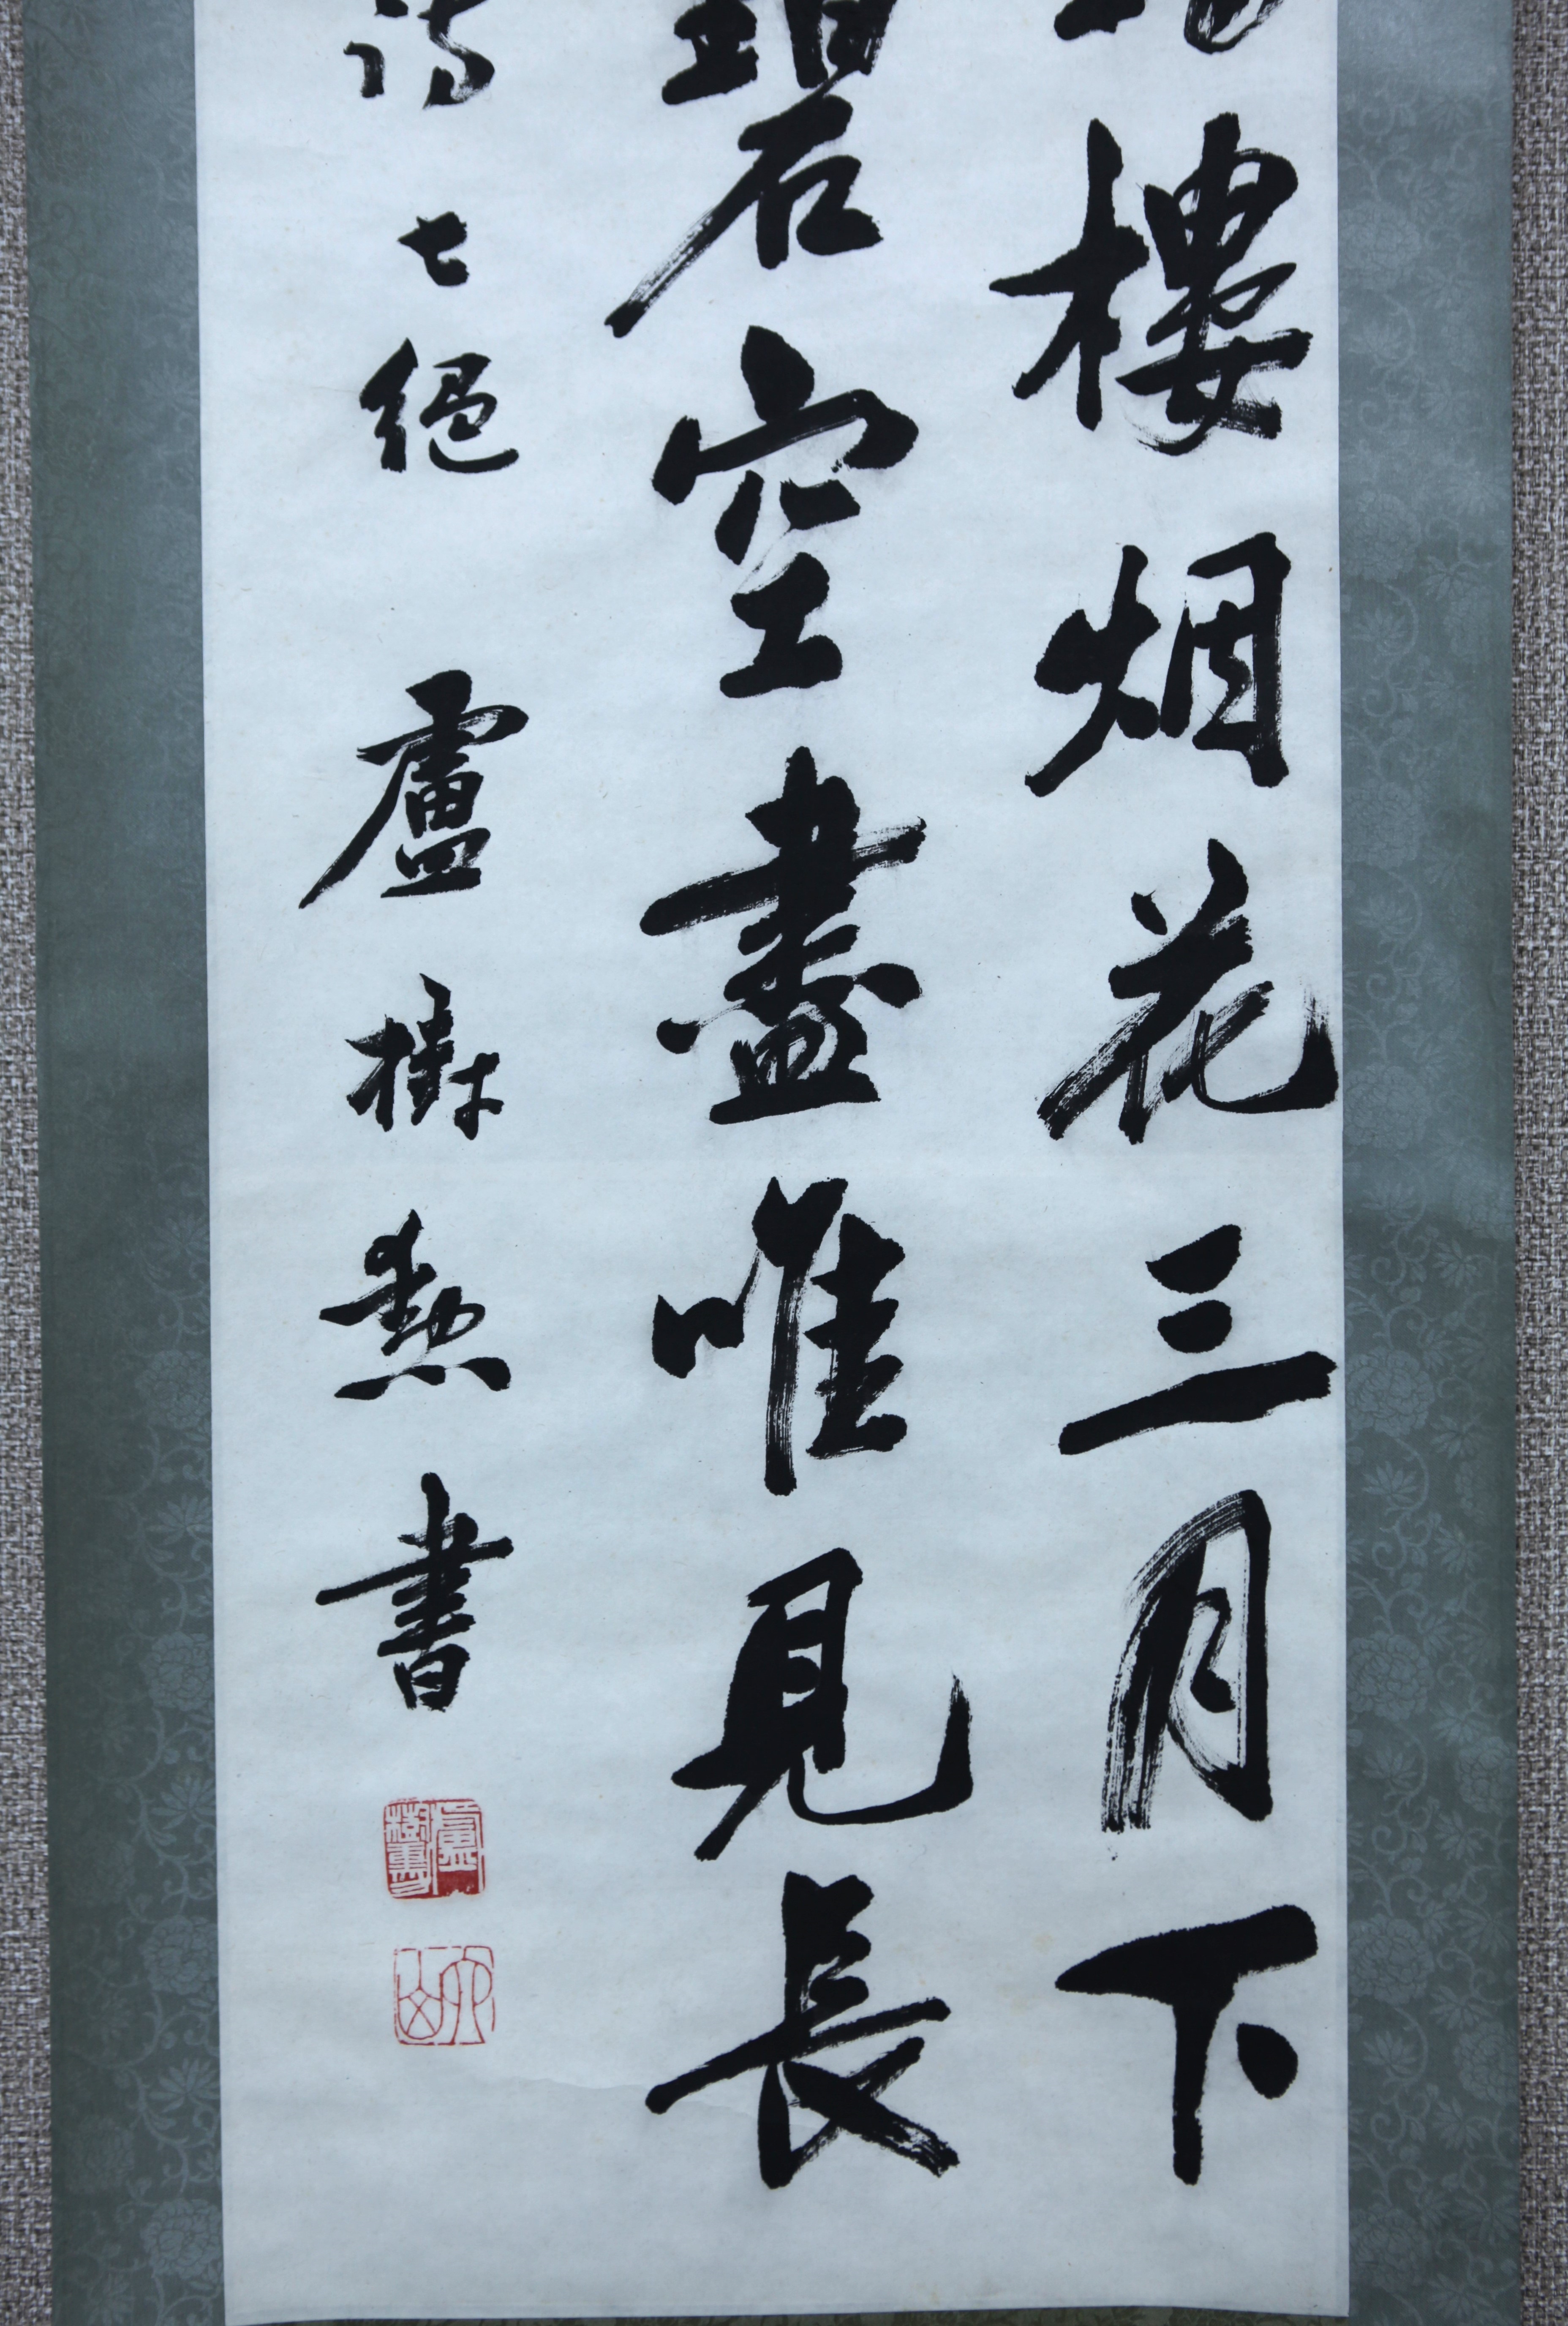 樓烟花三月下
碧空盡唯見長
詩七絕 盧樹勲書
盧樹勳